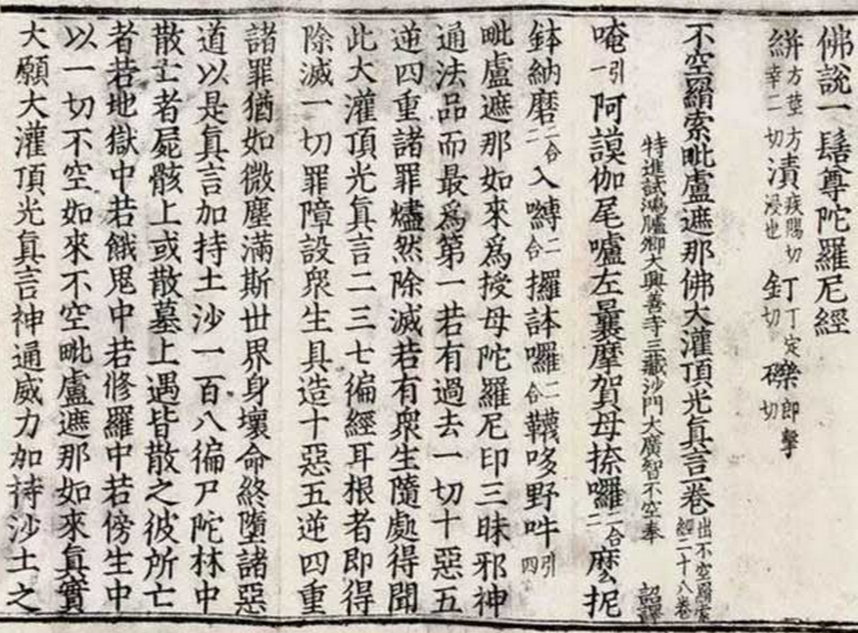 佛說一髻尊陀羅尼經
絣方莖切二幸方切漬疾賜切浸也釘丁定切礫郎擊切
不空羂索毗盧遮那佛大灌頂光真言一卷出不空羂索經二十八卷
特進試鴻臚卿大興善寺三藏沙門大廣智不空奉 詔譯
唵引一阿謨伽尾嚧左曩摩賀母捺囉二合二麼抳
鉢納磨二合二入嚩二合攞跢囉二合韈哆野吽引四
毗盧遮那如來為授母陀羅尼印三昧邪神
通法品而最為第一若有過去一切十惡五
逆四重諸罪燼然除滅若有衆生隨處得聞
此大灌頂光真言二三七徧經耳根者即得
除滅一切罪障設衆生具造十惡五逆四重
諸罪猶如微塵滿斯世界身壞命終墮諸惡
道以是真言加持土沙一百八徧尸陀林中
散亡者屍骸上或散墓上遇皆散之彼所亡
者若地獄中若餓鬼中若修羅中若傍生中
以一切不空如來不空毗盧遮那如來真實
大願大灌頂光真言神通威力加持沙土之